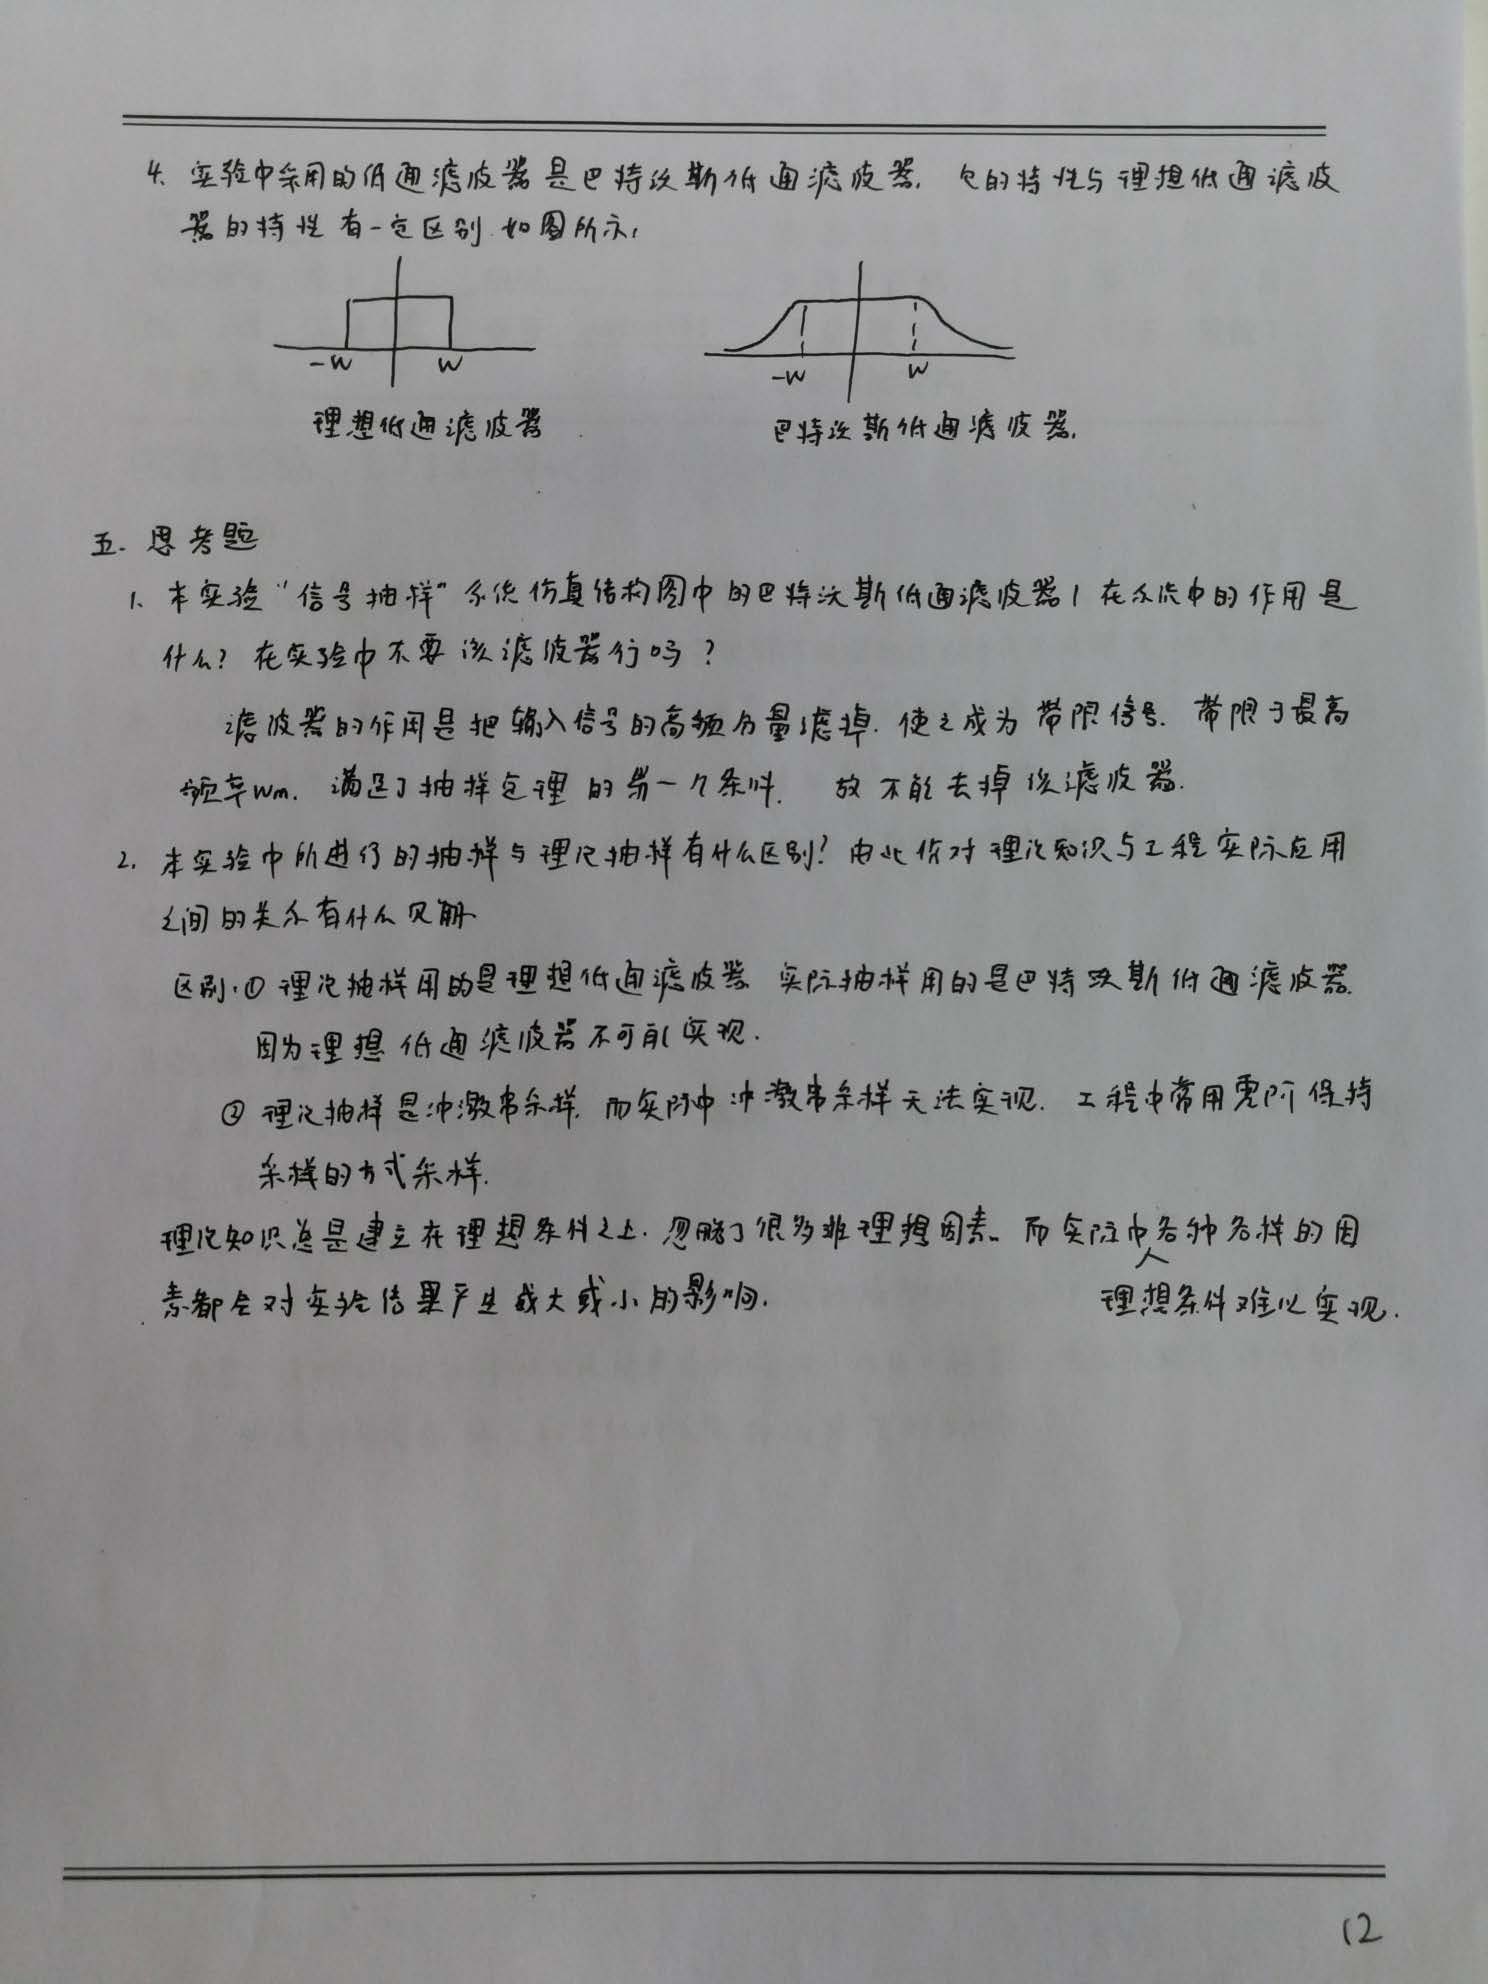 4、实验中采用的低通滤波器是巴特沃斯低通滤波器. 它的特性与理想低通滤波
器的特性有一定区别. 如图所示,
-W W -W W
理想低通滤波器 巴特沃斯低通滤波器.
五. 思考题
1、本实验“信号抽样”系统仿真结构图中的巴特沃斯低通滤波器1在系统中的作用是
什么? 在实验中不要该滤波器行吗?
滤波器的作用是把输入信号的高频分量滤掉. 使之成为带限信号. 带限于最高
频率Wm. 满足了抽样定理的第一个条件. 故不能去掉该滤波器.
2. 本实验中所进行的抽样与理论抽样有什么区别? 由此你对理论知识与工程实际应用
之间的关系有什么见解
区别.① 理论抽样用的是理想低通滤波器 实际抽样用的是巴特沃斯低通滤波器.
因为理想低通滤波器不可能实现.
② 理论抽样是冲激串采样. 而实际中冲激串采样无法实现. 工程中常用零阶保持
采样的方式采样.
理论知识总是建立在理想条件之上. 忽略了很多非理想因素. 而实际中各种各样的因
素都会对实验结果产生或大或小的影响. 理想条件难以实现.
12